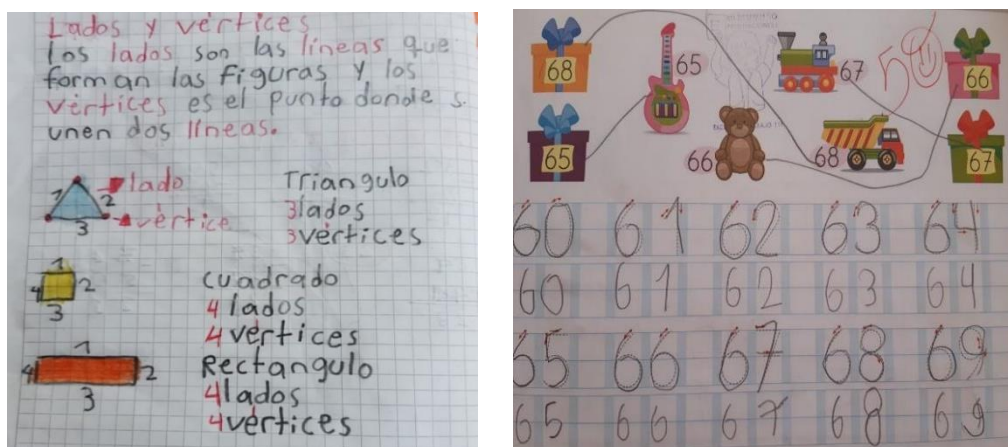 Lados y vértices
Los lados son las líneas que
forman las figuras y los
vértices es el punto donde s
unen dos líneas.
lado
vértice
1
2
3
Triangulo
3 lados
3 vértices
1
2
3
4
cuadrado
4 lados
4 vértices
1
2
3
4
Rectangulo
4 lados
4 vértices
68
65
67
66
65
66
68
67
60 61 62 63 64
60 61 62 63 64
65 66 67 68 69
65 66 67 68 69